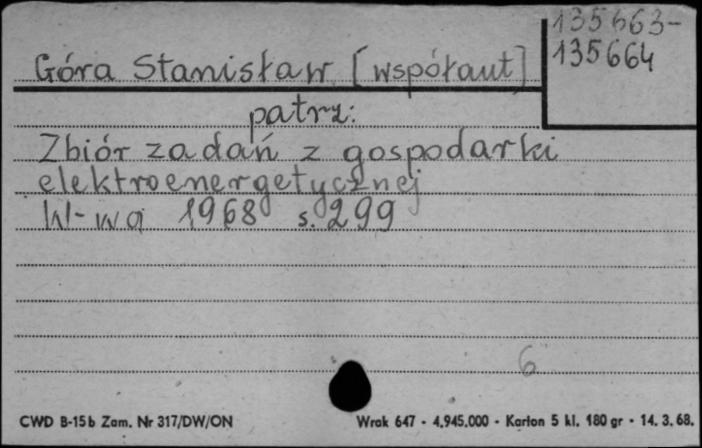 135663-
135664
Góra Stanisław [współaut]
patrz:
Zbiór zadań z gospodarki
elektroenergetycznej
W-wa 1968 s. 299
6
CWD B-15b Zam. Nr 317/DW/ON Wrak 647 - 4.945.000 - Karton 5 kl. 180 gr - 14. 3. 68.